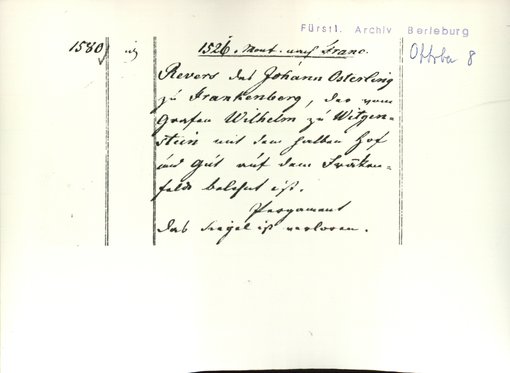 Fürstl. Archiv Berleburg
1580
1526. Mont. nach Franc.
Revers des Johann Osterling
zu Frankenberg, der vom
Grafen Wilhelm zu Witgen-
stein mit dem halben Hof
und Gut auf dem
felde belehnt ist.
Pergament
das Siegel ist verloren.
8